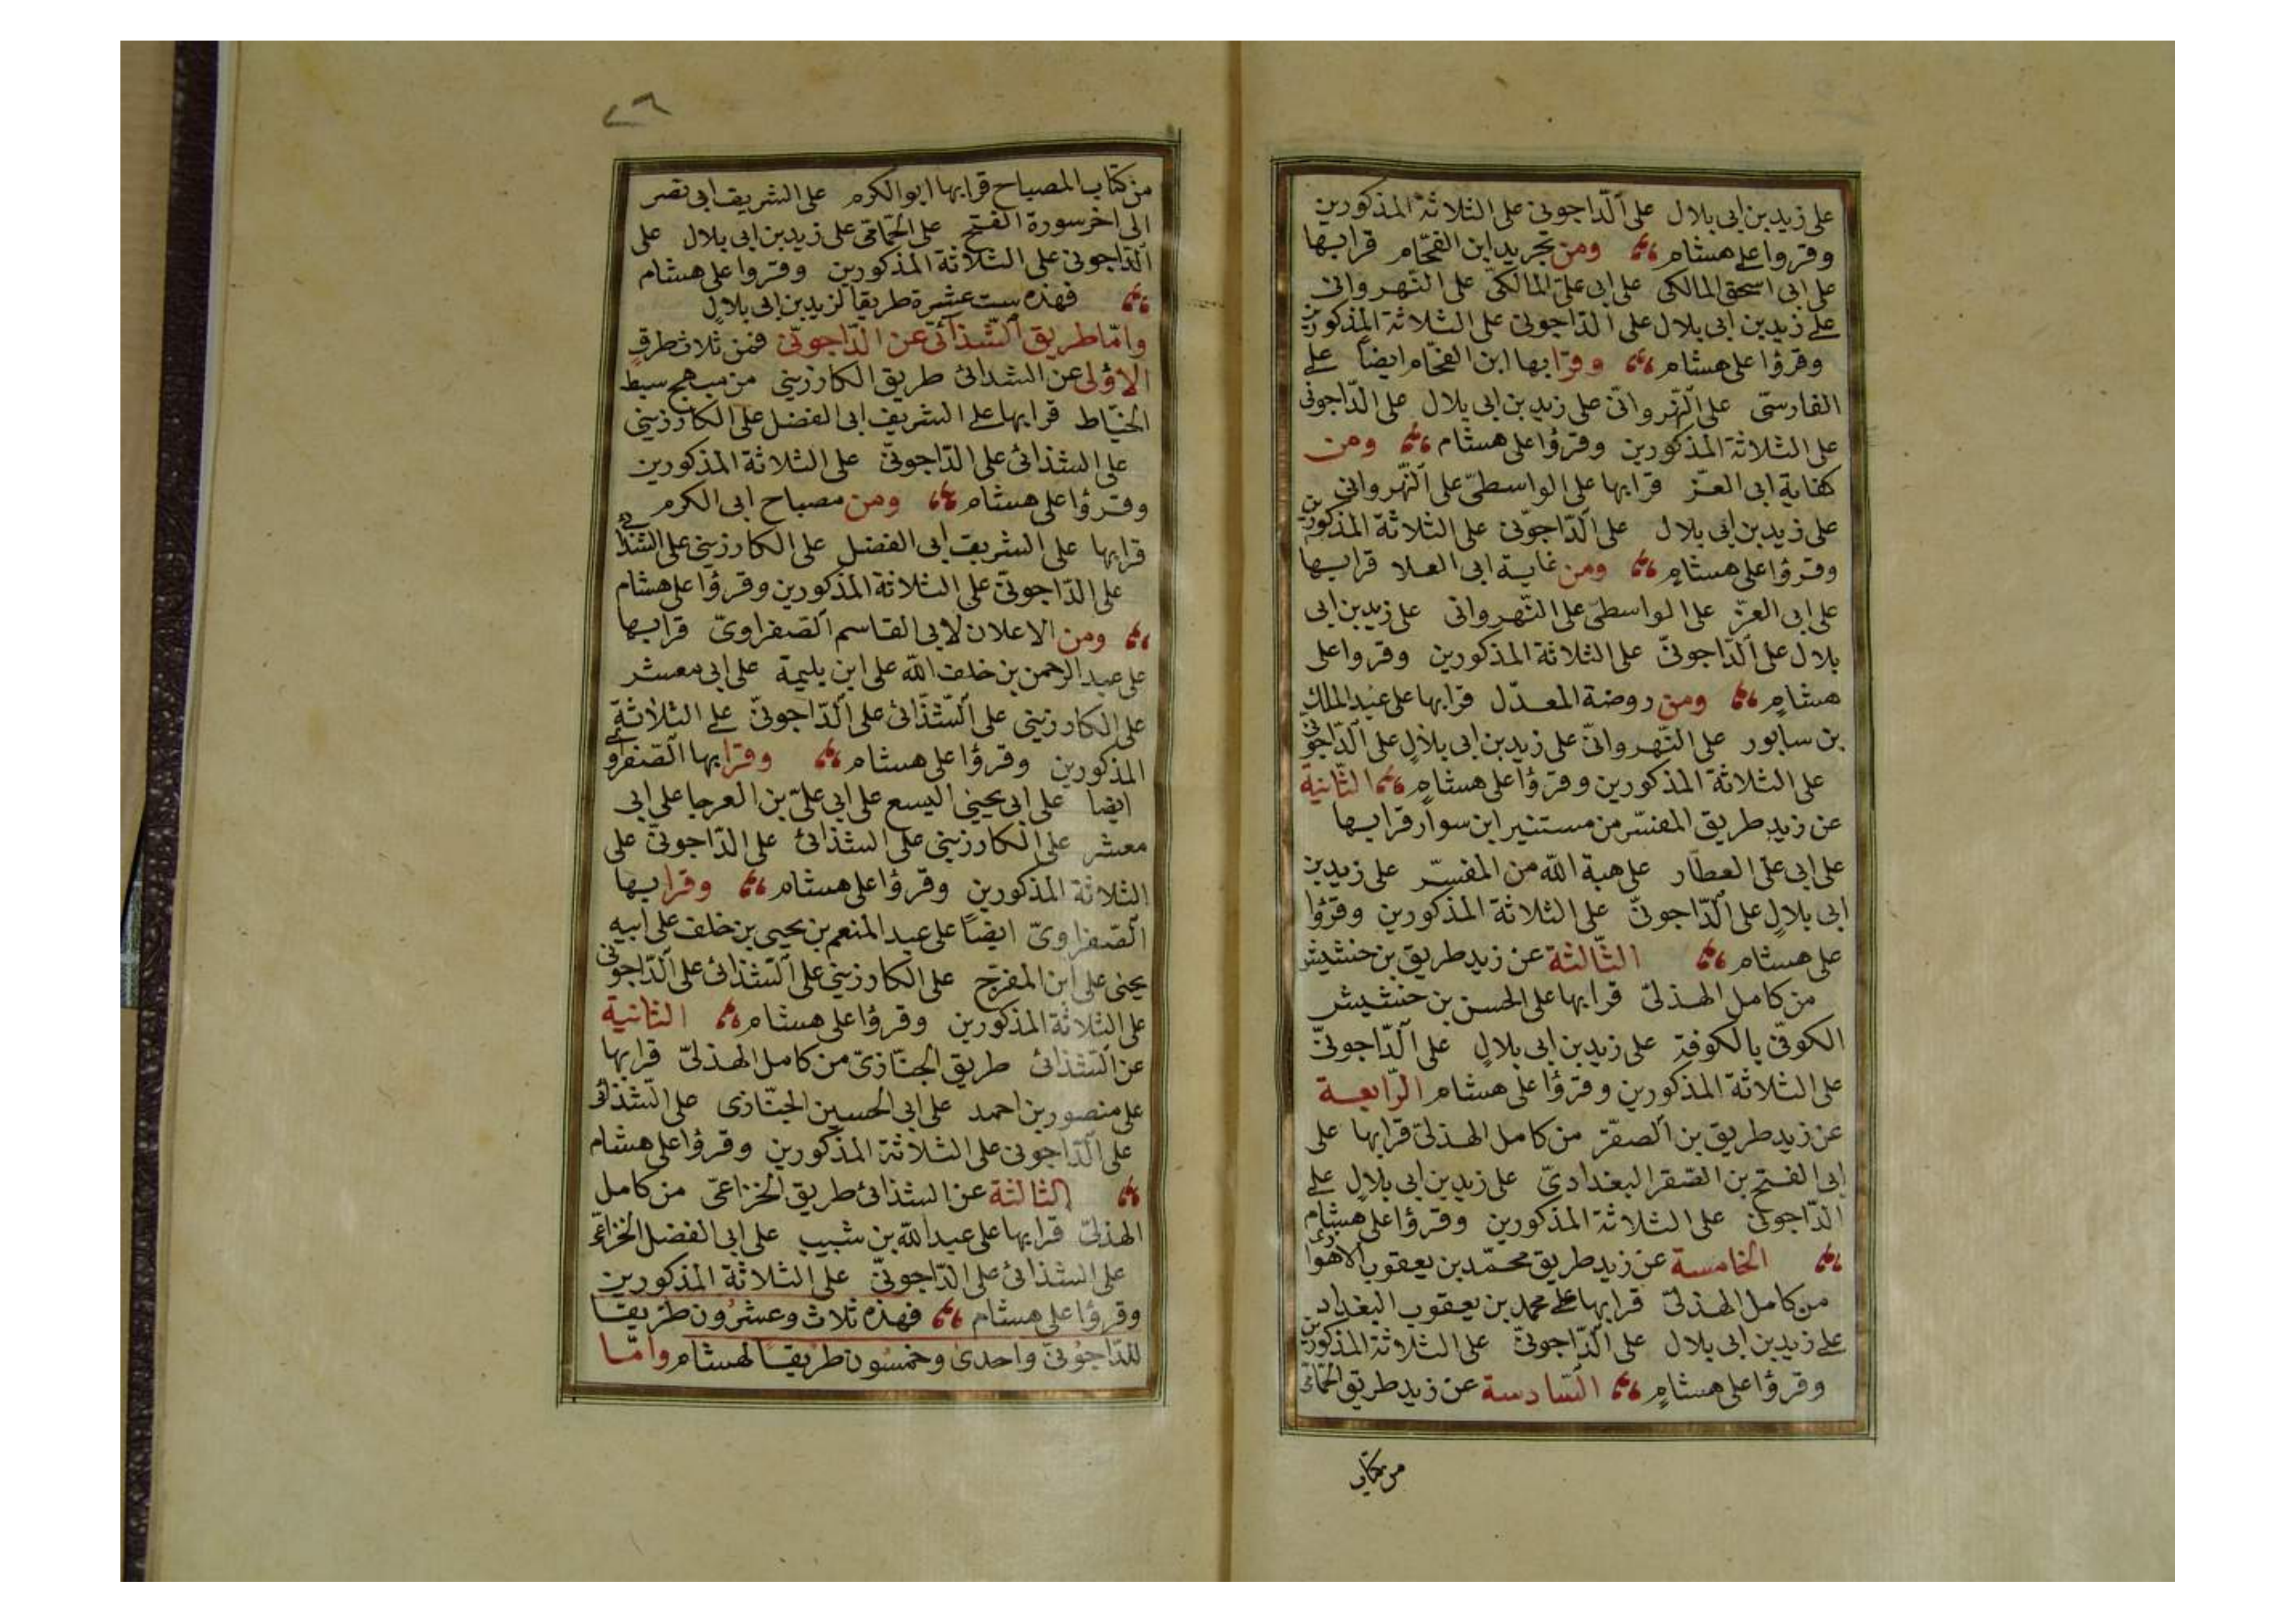 على زيد بن ابى بلال على الدّاجونى على الثلاثة المذكورين
وقروا على هشام ومن تجريد ابن الفحّام قرا بها
على ابى اسحق المالكى على ابى علىّ المالكىّ على النّهروانى
على زيد بن ابى بلال على الدّاجونى على الثلاثة المذكورين
وقرؤا على هشام وقرا بها ابن الفحّام ايضا على
الفارسىّ على النّهروانىّ على زيد بن ابى بلال على الدّاجونى
على الثلاثة المذكورين وقرؤا على هشام ومن
كفاية ابى العزّ قرا بها على الواسطىّ على النّهروانى
على زيد بن ابى بلال على الدّاجونى على الثلاثة المذكورين
وقرؤا على هشامٍ ومن غاية ابى العلا قرا بها
على ابى العزّ على الواسطىّ على النّهروانى على زيد بن ابى
بلال على الدّاجونىّ على الثلاثة المذكورين وقروا على
هشامٍ ومن روضة المعدّل قرا بها على عبد الملك
بن سابور على النّهروانىّ على زيد بن ابى بلالٍ على الدّاجونى
على الثلاثة المذكورين وقرؤا على هشامٍ الثّانية
عن زيدٍ طريق المفسّر من مستنير ابن سوار قرا بها
على ابى علىّ العطّار على هبة الله من المفسّر على زيد بن
ابى بلالٍ على الدّاجونىّ على الثلاثة المذكورين وقرؤا
على هشام الثّالثة عن زيد طريق بن خنشيش
من كامل الهذلىّ قرا بها على الحسن بن خنشيش
الكوفىّ بالكوفة على زيد بن ابى بلالٍ على الدّاجونىّ
على الثلاثة المذكورين وقرؤا على هشام الرّابعة
عن زيد طريق بن الصقر من كامل الهذلىّ قرا بها على
ابى الفتح بن الصّقر البغدادىّ على زيد بن ابى بلالٍ على
الدّاجونى على الثلاثة المذكورين وقرؤا على هشام
الخامسة عن زيد طريق محمّد بن يعقوب الاهوازى
من كامل الهذلىّ قرا بها على محمد بن يعقوب البغداد
على زيد بن ابى بلال على الدّاجونىّ على الثلاثة المذكورين
وقرؤا على هشامٍ السّادسة عن زيد طريق الحمّامى
من كتاب
٢٦
من كتاب المصباح قرا بها ابو الكرم على الشريف ابى نصر
الى اخر سورة الفتح على الحمّامى على زيد بن ابى بلال على
الدّاجونى على الثلاثة المذكورين وقروا على هشام
فهذه ست عشرة طريقا لزيد بن ابى بلالٍ
وامّا طريق الشّذائى عن الدّاجونّى فمن ثلاث طرقٍ
الاؤلى عن الشذائ طريق الكارزينى من مبهج سبط
الخيّاط قرا بها على الشريف ابى الفضل على الكارزينى
على الشذائ على الدّاجونىّ على الثلاثة المذكورين
وقرؤا على هشام ومن مصباح ابى الكرم
قرا بها على الشريف ابى الفضل على الكارزينى على الشذائى
على الدّاجونىّ على الثلاثة المذكورين وقرؤا على هشام
ومن الاعلان لابى القاسم الصّفراوىّ قرا بها
على عبد الرحمن بن خلف الله على ابن بليمة على ابى معشر
على الكارزينى على الشّذائ على الدّاجونىّ على الثلاثة
المذكورين وقرؤا على هشام وقرا بها الصّفراوى
ايضا على ابى يحيى اليسع على ابى علىّ بن العرجا على ابى
معشر على الكارزينى على الشذائ على الدّاجونىّ على
الثلاثة المذكورين وقرؤا على هشام وقرا بها
الصّفراوىّ ايضًا على عبد المنعم بن يحيى بن خلف على ابيه
يحيى على ابن المفرّج على الكارزينى على الشّذائ على الدّاجونى
على الثلاثة المذكورين وقرؤا على هشام الثانية
عن الشّذائ طريق الخبّازىّ من كامل الهذلىّ قرا بها
على منصور بن احمد على ابى الحسين الخبّازى على الشّذائى
على الدّاجونى على الثلاثة المذكورين وقرؤا على هشام
الثالثة عن الشذائ طريق الخزاعىّ من كامل
الهذلىّ قرا بها على عبد الله بن شبيب على ابى الفضل الخزاعىّ
على الشذائ على الدّاجونىّ على الثلاثة المذكورين
وقرؤا على هشام فهذه ثلاث وعشرون طريقا
للدّاجونىّ واحدى وخمسون طريقا لهشام وامّا